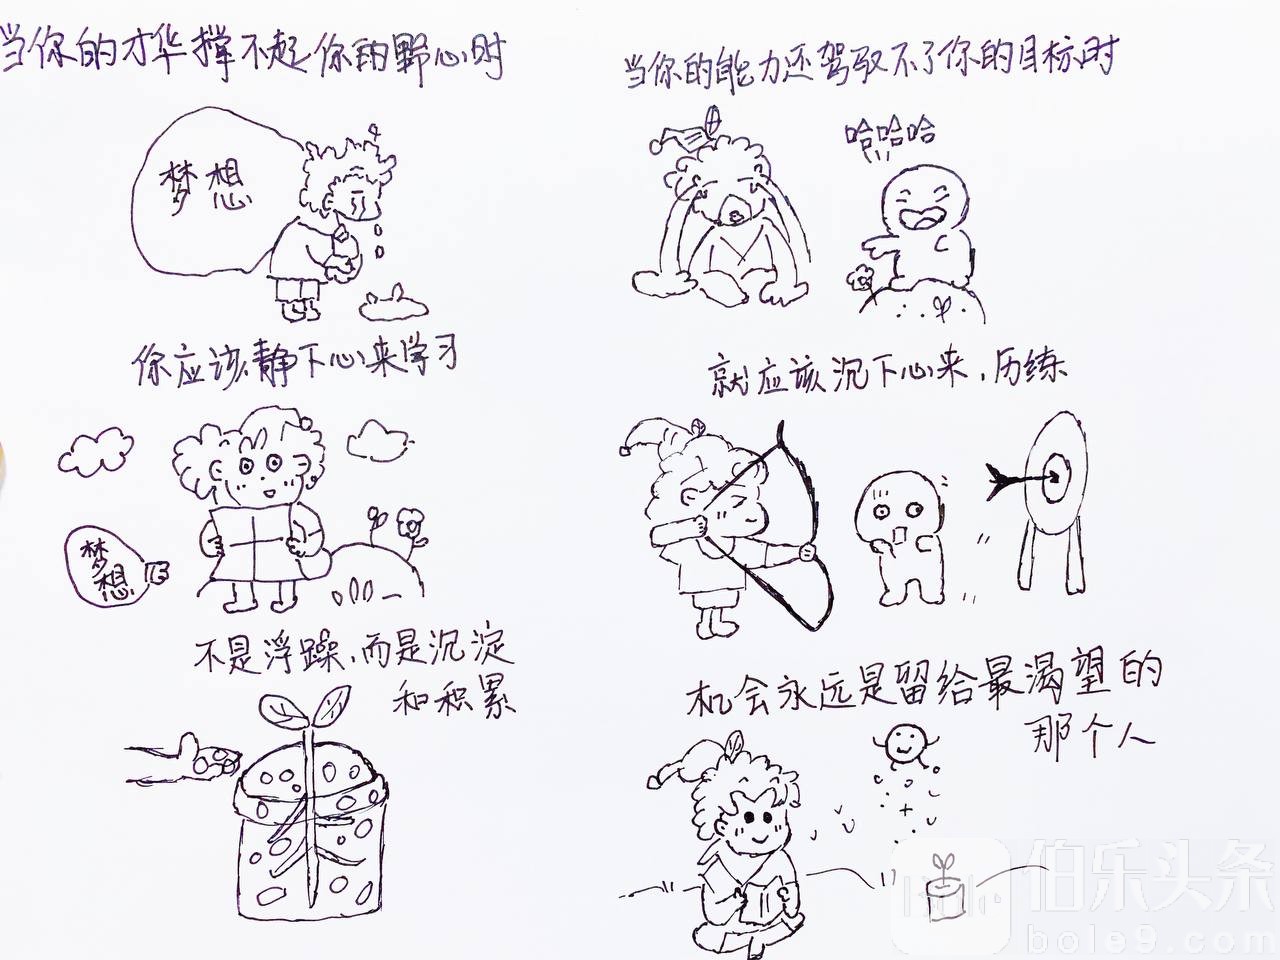 当你的才华撑不起你的野心时
梦想
你应该静下心来学习
梦
想
不是浮躁，而是沉淀
和积累
当你的能力还驾驭不了你的目标时
哈哈哈
就应该沉下心来，历练
机会永远是留给最渴望的
那个人
Bole
伯乐头条
bole9.com